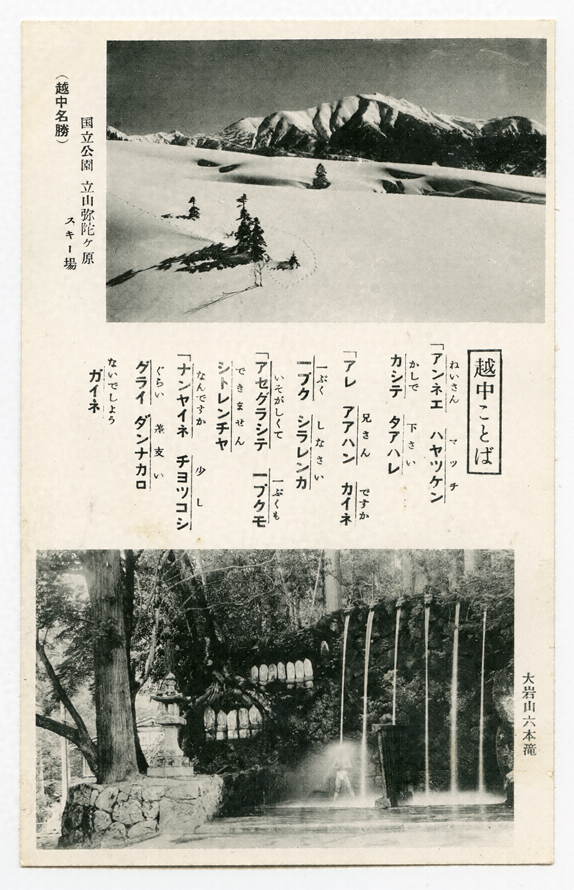 (越中名勝)
国立公園 立山弥陀ヶ原
スキー場
越中ことば
ねいさん マッチ
「アンネエ ハヤツケン
かしで 下さい
カシテ タアハレ
兄さん ですか
「アレ アアハン カイネ
一ぷく しなさい
一プク シラレンカ
いそがしくて 一ぷくも
「アセグラシテ 一プクモ
できません
シトレンチヤ
なんですか 少し
「ナンヤイネ チヨツコシ
ぐらい 差支い
グライ ダンナカロ
ないでしよう
ガイネ
大岩山六本滝